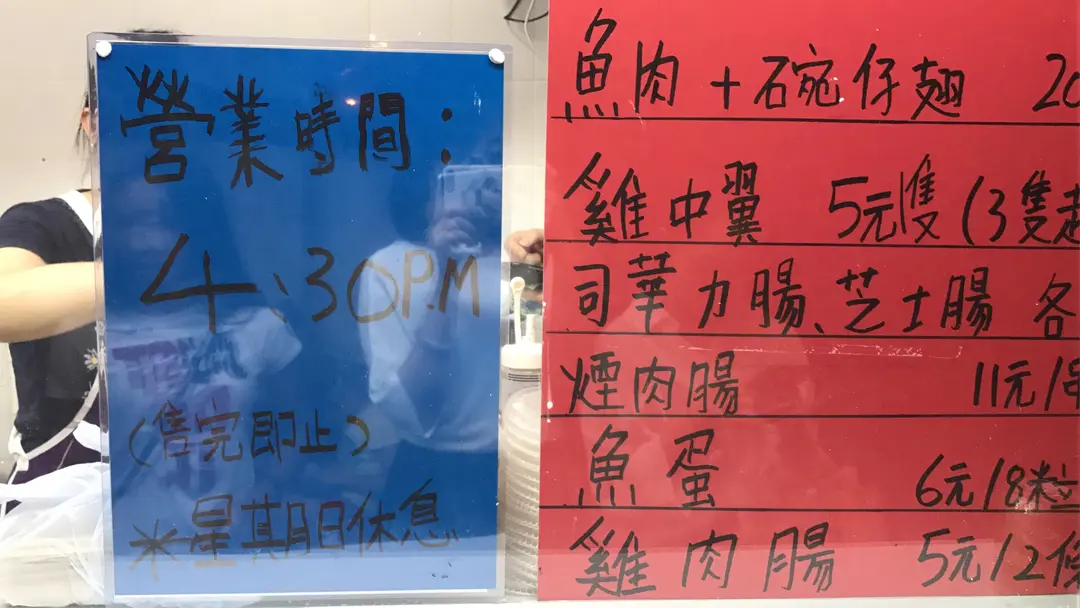 營業時間：
4:30P.M
(售完即止)
*星期日休息
魚肉+碗仔翅 20
雞中翼 5元隻(3隻起
司華力腸、芝士腸 各
煙肉腸 11元/串
魚蛋 6元/8粒
雞肉腸 5元/2條